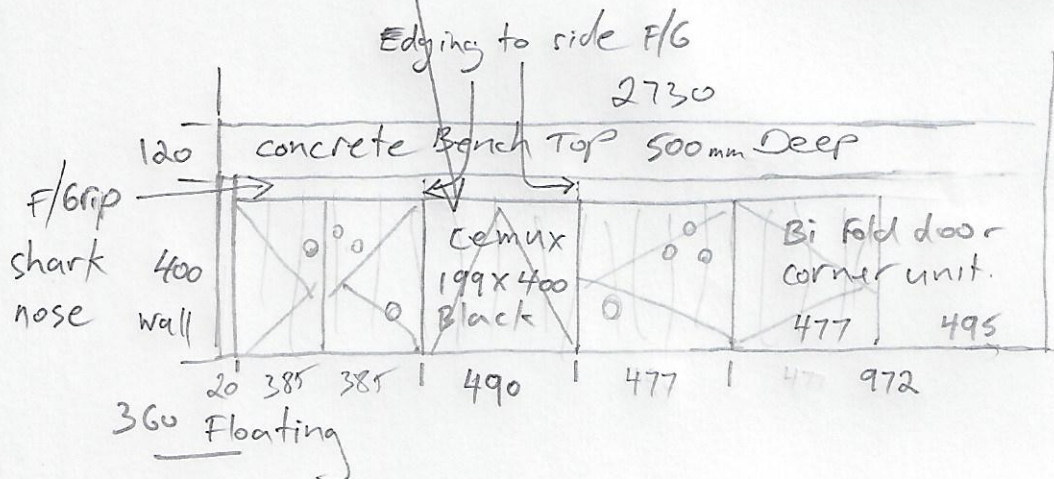 Edging to side F/G
2730
120 concrete Bench Top 500mm Deep
F/Grip
shark 400
nose wall
Cemux
199 x 400
Black
Bi Fold door
corner unit.
477 495
20 385 385 490 477 477 972
360 Floating